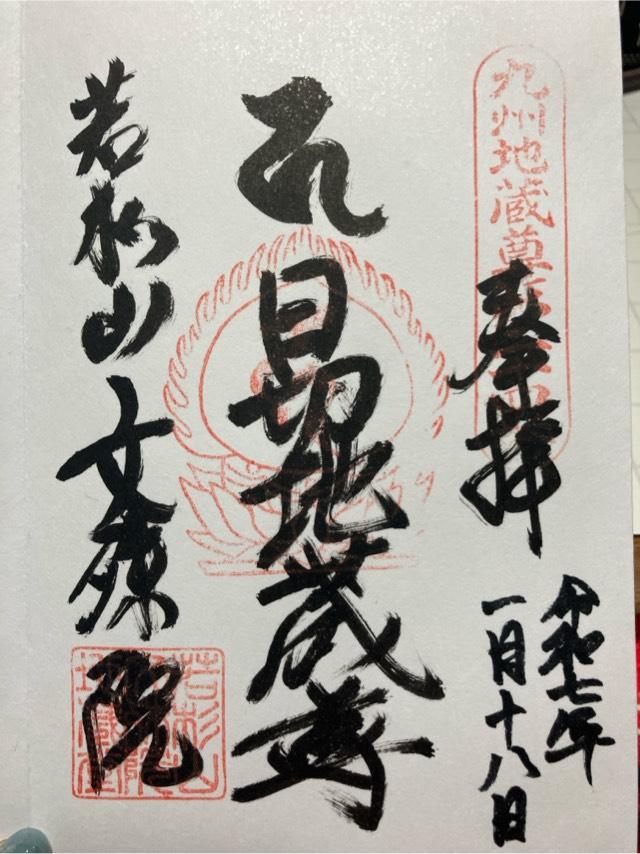 九州地蔵尊
奉拝
令和七年
一月十八日
日切地蔵尊
若杉山文殊院